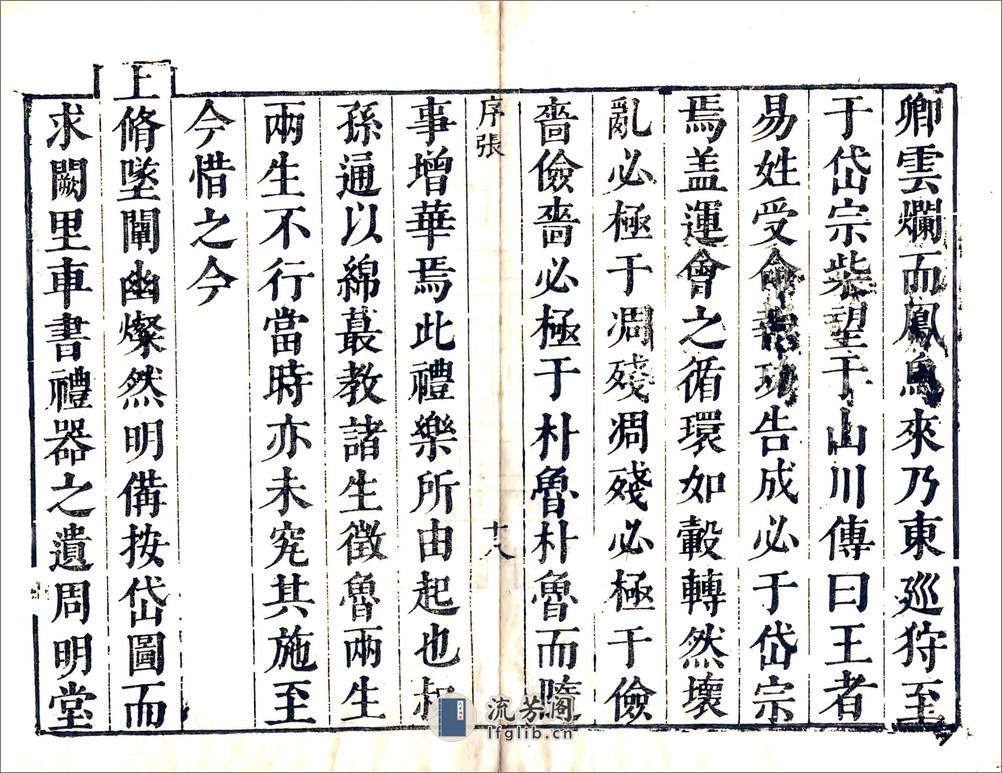 卿雲爛而鳳鳥來乃東廵狩至
于岱宗柴望于山川傳曰王者
易姓受命功告成必于岱宗
焉盖運會之循環如轂轉然壞
亂必極于凋殘凋殘必極于儉
嗇儉嗇必極于朴魯朴魯而隨
序張
十八
事增華焉此禮樂所由起也叔
孫通以綿蕞教諸生徵魯兩生
兩生不行當時亦未究其施至
今惜之今
上脩墜闡幽燦然明備按岱圖而
求闕里車書禮器之遺周明堂
流芳阁
lfglib.cn